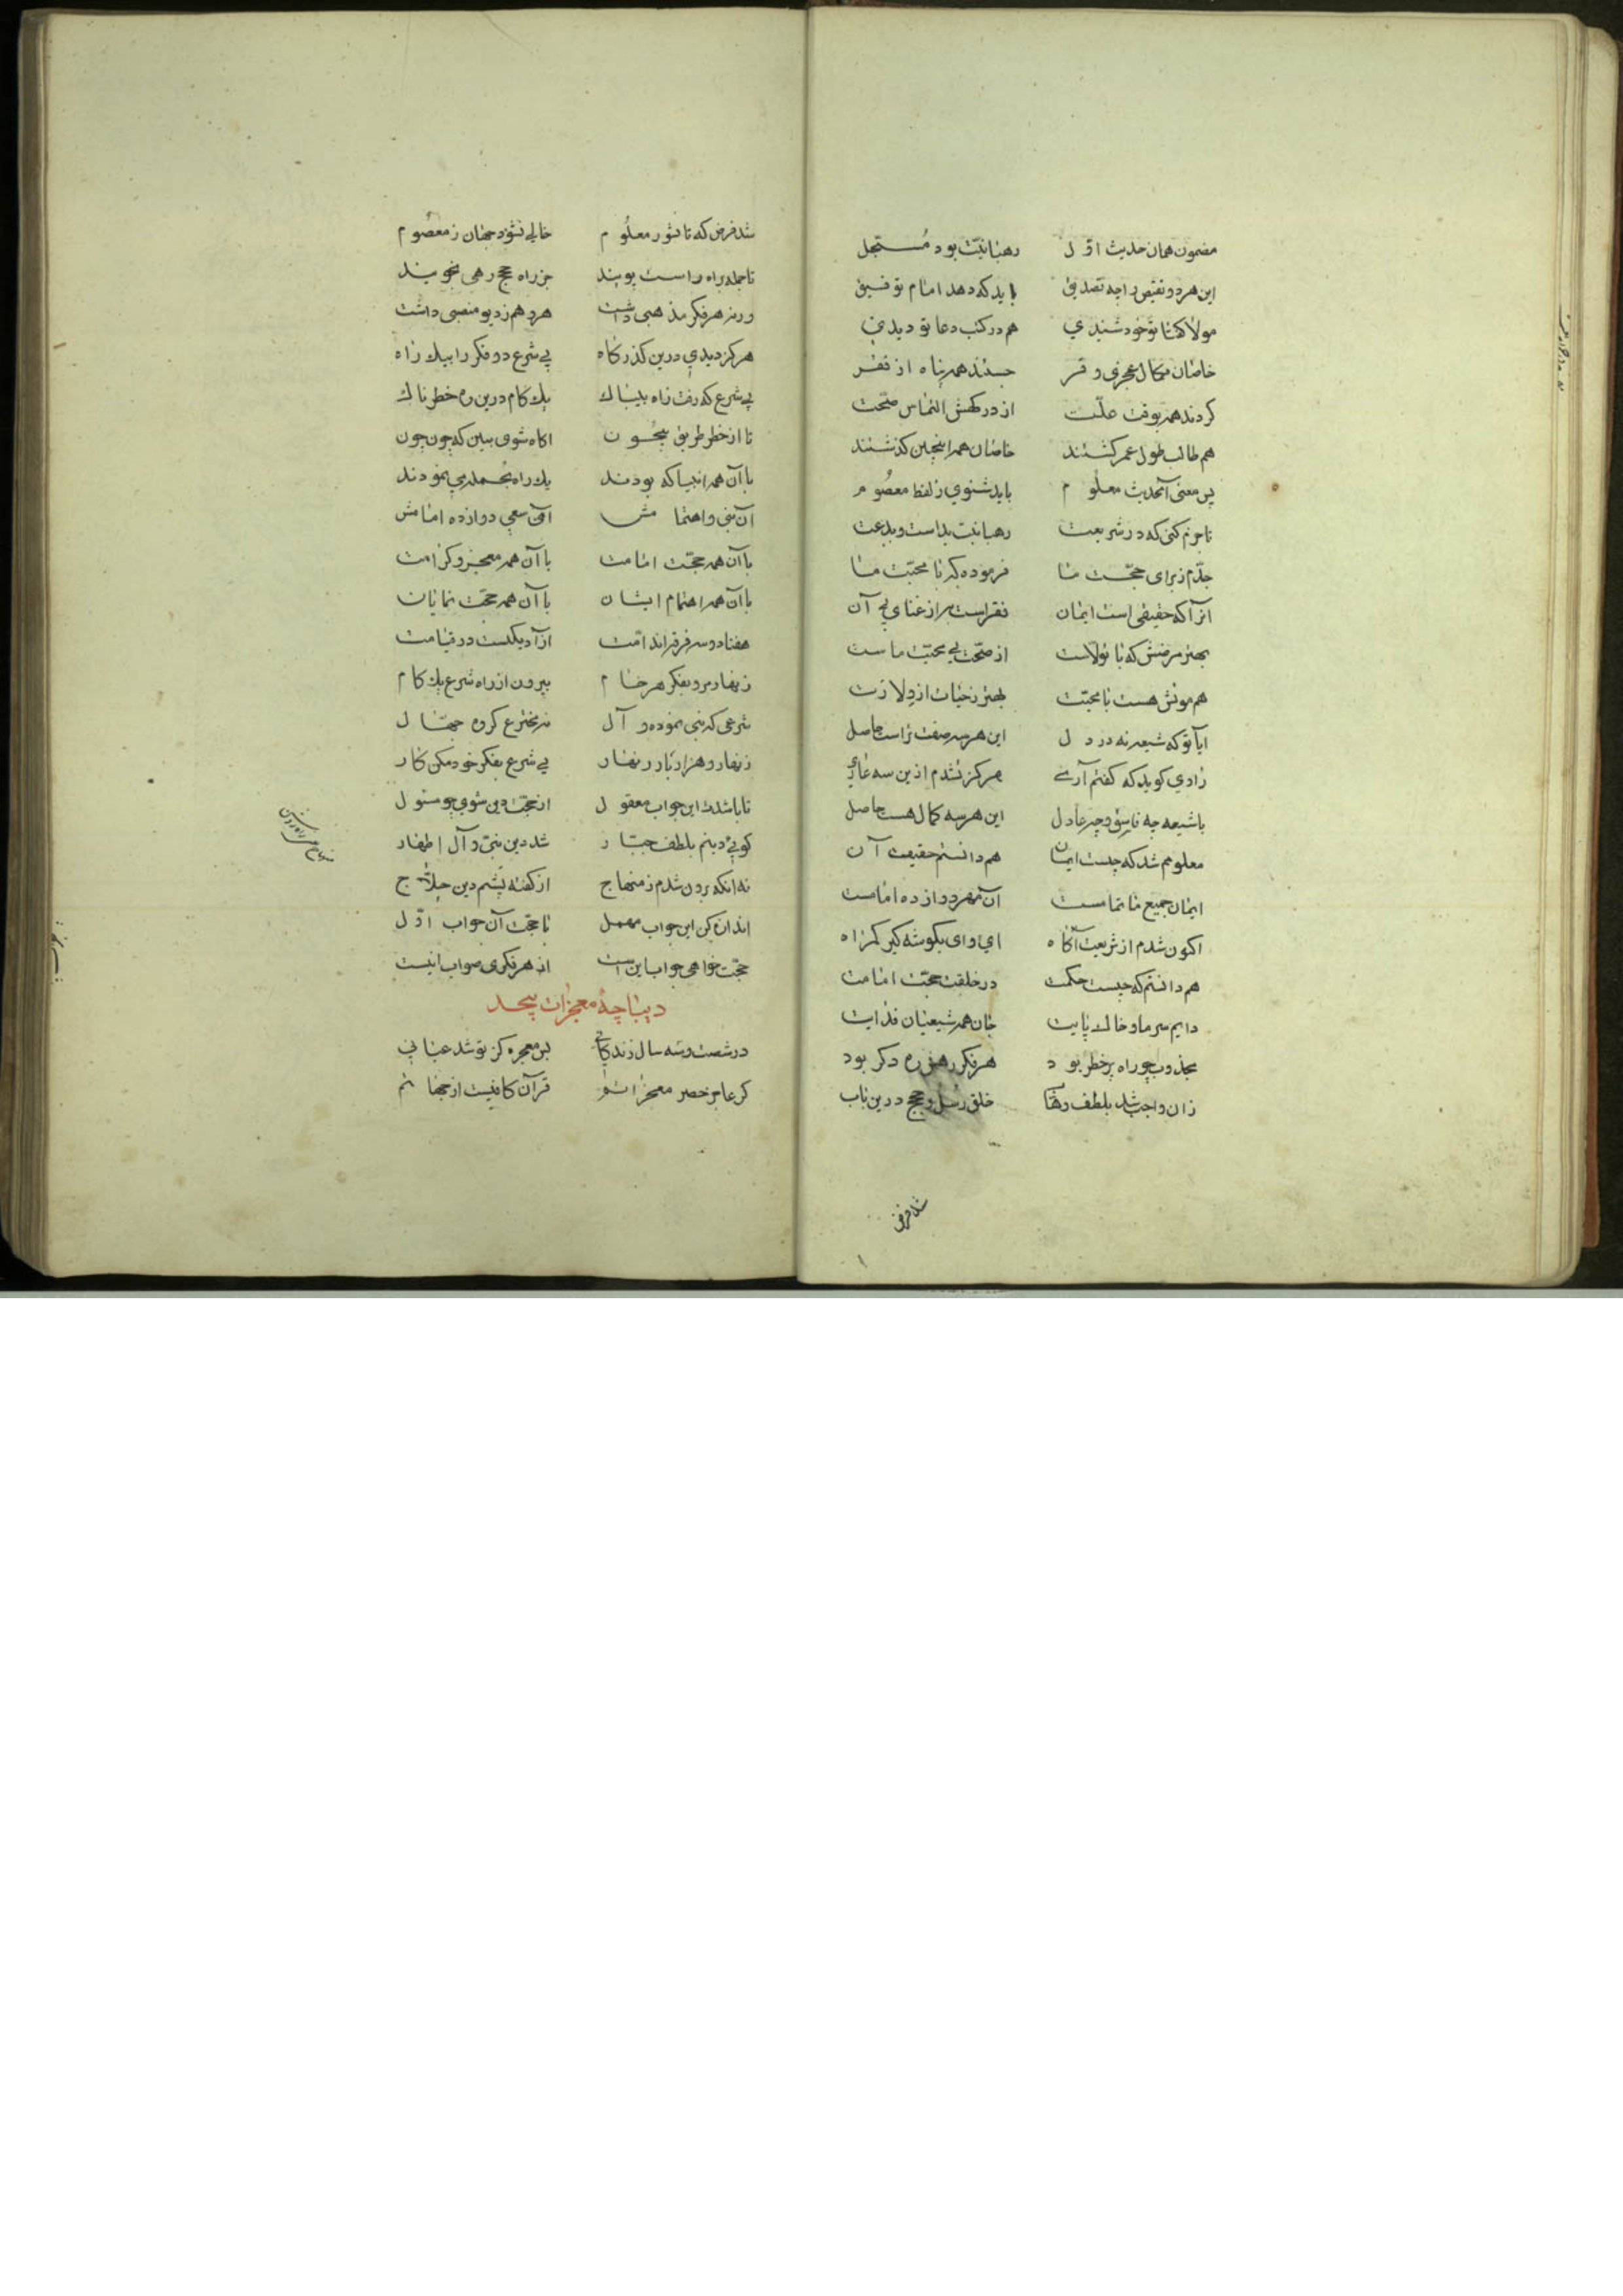 مضمون همان حدیث اول رهبانیت بود مستجل
این هر دو نقیض را چه تصدیق باید که دهد امام توفیق
هم در کتب دعا تو دیدی
خاصان بکمال عجز و فقر جستند همه پناه از فقر
کردند همه بوقت علت از درکهش التماس صحت
هم طالب طول عمر کشتند خاصان همه اینچنین کذشتند
پس معنی آنحدیث معلوم باید شنوی ز لفظ معصوم
تا جزم کنی که در شریعت رهبانیت بد است و بدعت
جدم ز برای حجت ما فرموده که با محبت ما
آنرا که حقیقی است ایمان فقر است به از غنای بی آن
بهتر مرضش که با تولاست از صحت بی محبت ماست
هم موتش هست با محبت بهتر ز حیات از ولادت
ایا تو که شیعه نه در دل این هر سه صفت تراست حاصل
راوی کوید که کفتم آری هرکز نشدم ازین سه عاری
با شیعه چه فاسق و چه عادل این هر سه کمال هست حاصل
معلومم شد که چیست ایمان هم دانستم حقیقت آن
ایمان جمیع ما تمامست آن مهر دوازده امامست
اکنون شدم از شریعت آکاه ای وای بکوشه کیر کمراه
هم دانستم که چیست حکمت در خلقت حجت امامت
دایم سر ما و خاک پایت جان همه شیعیان فدایت
مجذوب چو راه پر خطر بود هر فکر رهش ره دکر بود
زان واجب شد بلطف وهاب خلق رسل و حجج درین باب
شد فرض
شد فرض که تا شود معلوم خالی نشود جهان ز معصوم
تا جمله براه راست پویند جز راه حجج رهی نجویند
ورنه هر فکر مذهبی داشت هر وهم ز دیو منصبی داشت
هرکز دیدی درین کذرکاه بی شرع دو فکر را بیک راه
بی شرع که رفت راه بیباک یک کام درین ره خطرناک
تا از خطر طریق بیچون اکاه شوی ببین که چون چون
با آن همه انبیا که بودند یک راه بجمله می نمودند
آن نبی و اهتمامش آن سعی دوازده امامش
با آن همه حجت امامت با آن همه معجز و کرامت
با آن همه اهتمام ایشان با آن همه حجت نمایان
هفتاد و سه فرقه اند امت
زنهار مرو بفکر هر خام بیرون از راه شرع یک کام
شرعی که نبی نموده و آل نه مخترع کروه جهال
زنهار و هزار بار زنهار بی شرع بفکر خود مکن کار
تا باشدت این جواب معقول از حجت دین شوی چو مسئول
کویی دینم بلطف جبار شد دین نبی و آل اطهار
نه انکه برون شدم ز منهاج از کفته پشم دین حلاج
اندازه کن این جواب مهمل با حجت آن جواب اول
حجت خواهی جواب این است از هر فکری صواب اینست
دیباچۀ معجزات بیحد
در شصت و سه سال زندکانی بس معجزه کز تو شد عیانی
کر عاجز حصر معجزاتم قرآن کافیست از جهانم